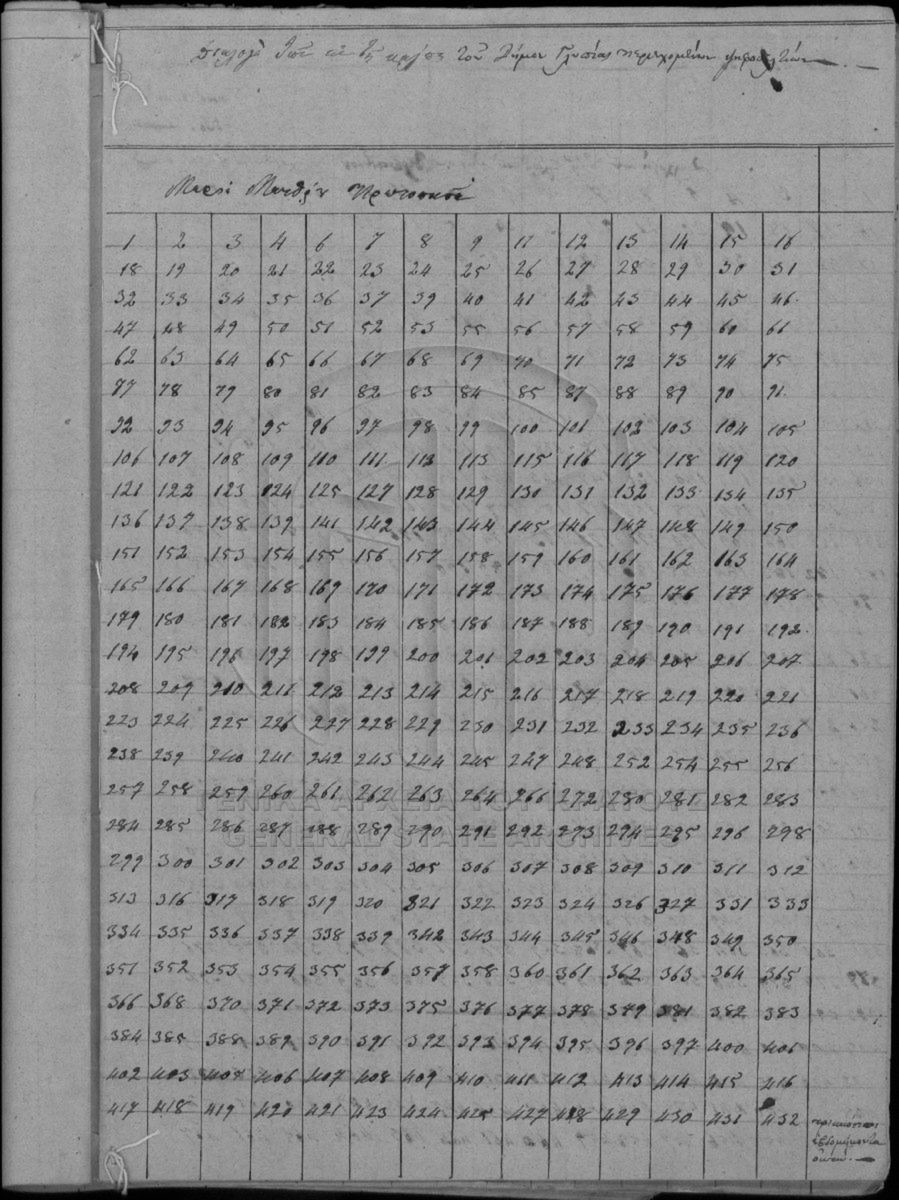 τοῦ Δήμου
1 2 3 4 6 7 8 9 11 12 13 14 15 16
18 19 20 21 22 23 24 25 26 27 28 29 30 31
32 33 34 35 36 37 39 40 41 42 43 44 45 46
47 48 49 50 51 52 53 55 56 57 58 59 60 61
62 63 64 65 66 67 68 69 70 71 72 73 74 75
77 78 79 80 81 82 83 84 85 87 88 89 90 91
92 93 94 95 96 97 98 99 100 101 102 103 104 105
106 107 108 109 110 111 112 113 115 116 117 118 119 120
121 122 123 124 125 127 128 129 130 131 132 133 134 135
136 137 138 139 141 142 143 144 145 146 147 148 149 150
151 152 153 154 155 156 157 158 159 160 161 162 163 164
165 166 167 168 169 170 171 172 173 174 175 176 177 178
179 180 181 182 183 184 185 186 187 188 189 190 191 192
194 195 196 197 198 199 200 201 202 203 204 205 206 207
208 209 210 211 212 213 214 215 216 217 218 219 220 221
223 224 225 226 227 228 229 230 231 232 233 234 235 236
238 239 240 241 242 243 244 245 247 248 252 254 255 256
257 258 259 260 261 262 263 264 266 272 280 281 282 283
ΓΕΝΙΚΑ ΑΡΧΕΙΑ
284 285 286 287 288 289 290 291 292 293 294 295 296 298
GENERAL STATE ARCHIVES
299 300 301 302 303 304 305 306 307 308 309 310 311 312
313 316 317 318 319 320 321 322 323 324 326 327 331 333
334 335 336 337 338 339 342 343 344 345 346 348 349 350
351 352 353 354 355 356 357 358 360 361 362 363 364 365
366 368 370 371 372 373 375 376 377 378 379 381 382 383
384 385 388 389 390 391 392 393 394 395 396 397 400 401
402 403 405 406 407 408 409 410 411 412 413 414 415 416
417 418 419 420 421 423 424 425 427 428 429 430 431 432
τριακόσιαι
ἑβδομήκοντα
ὀκτώ